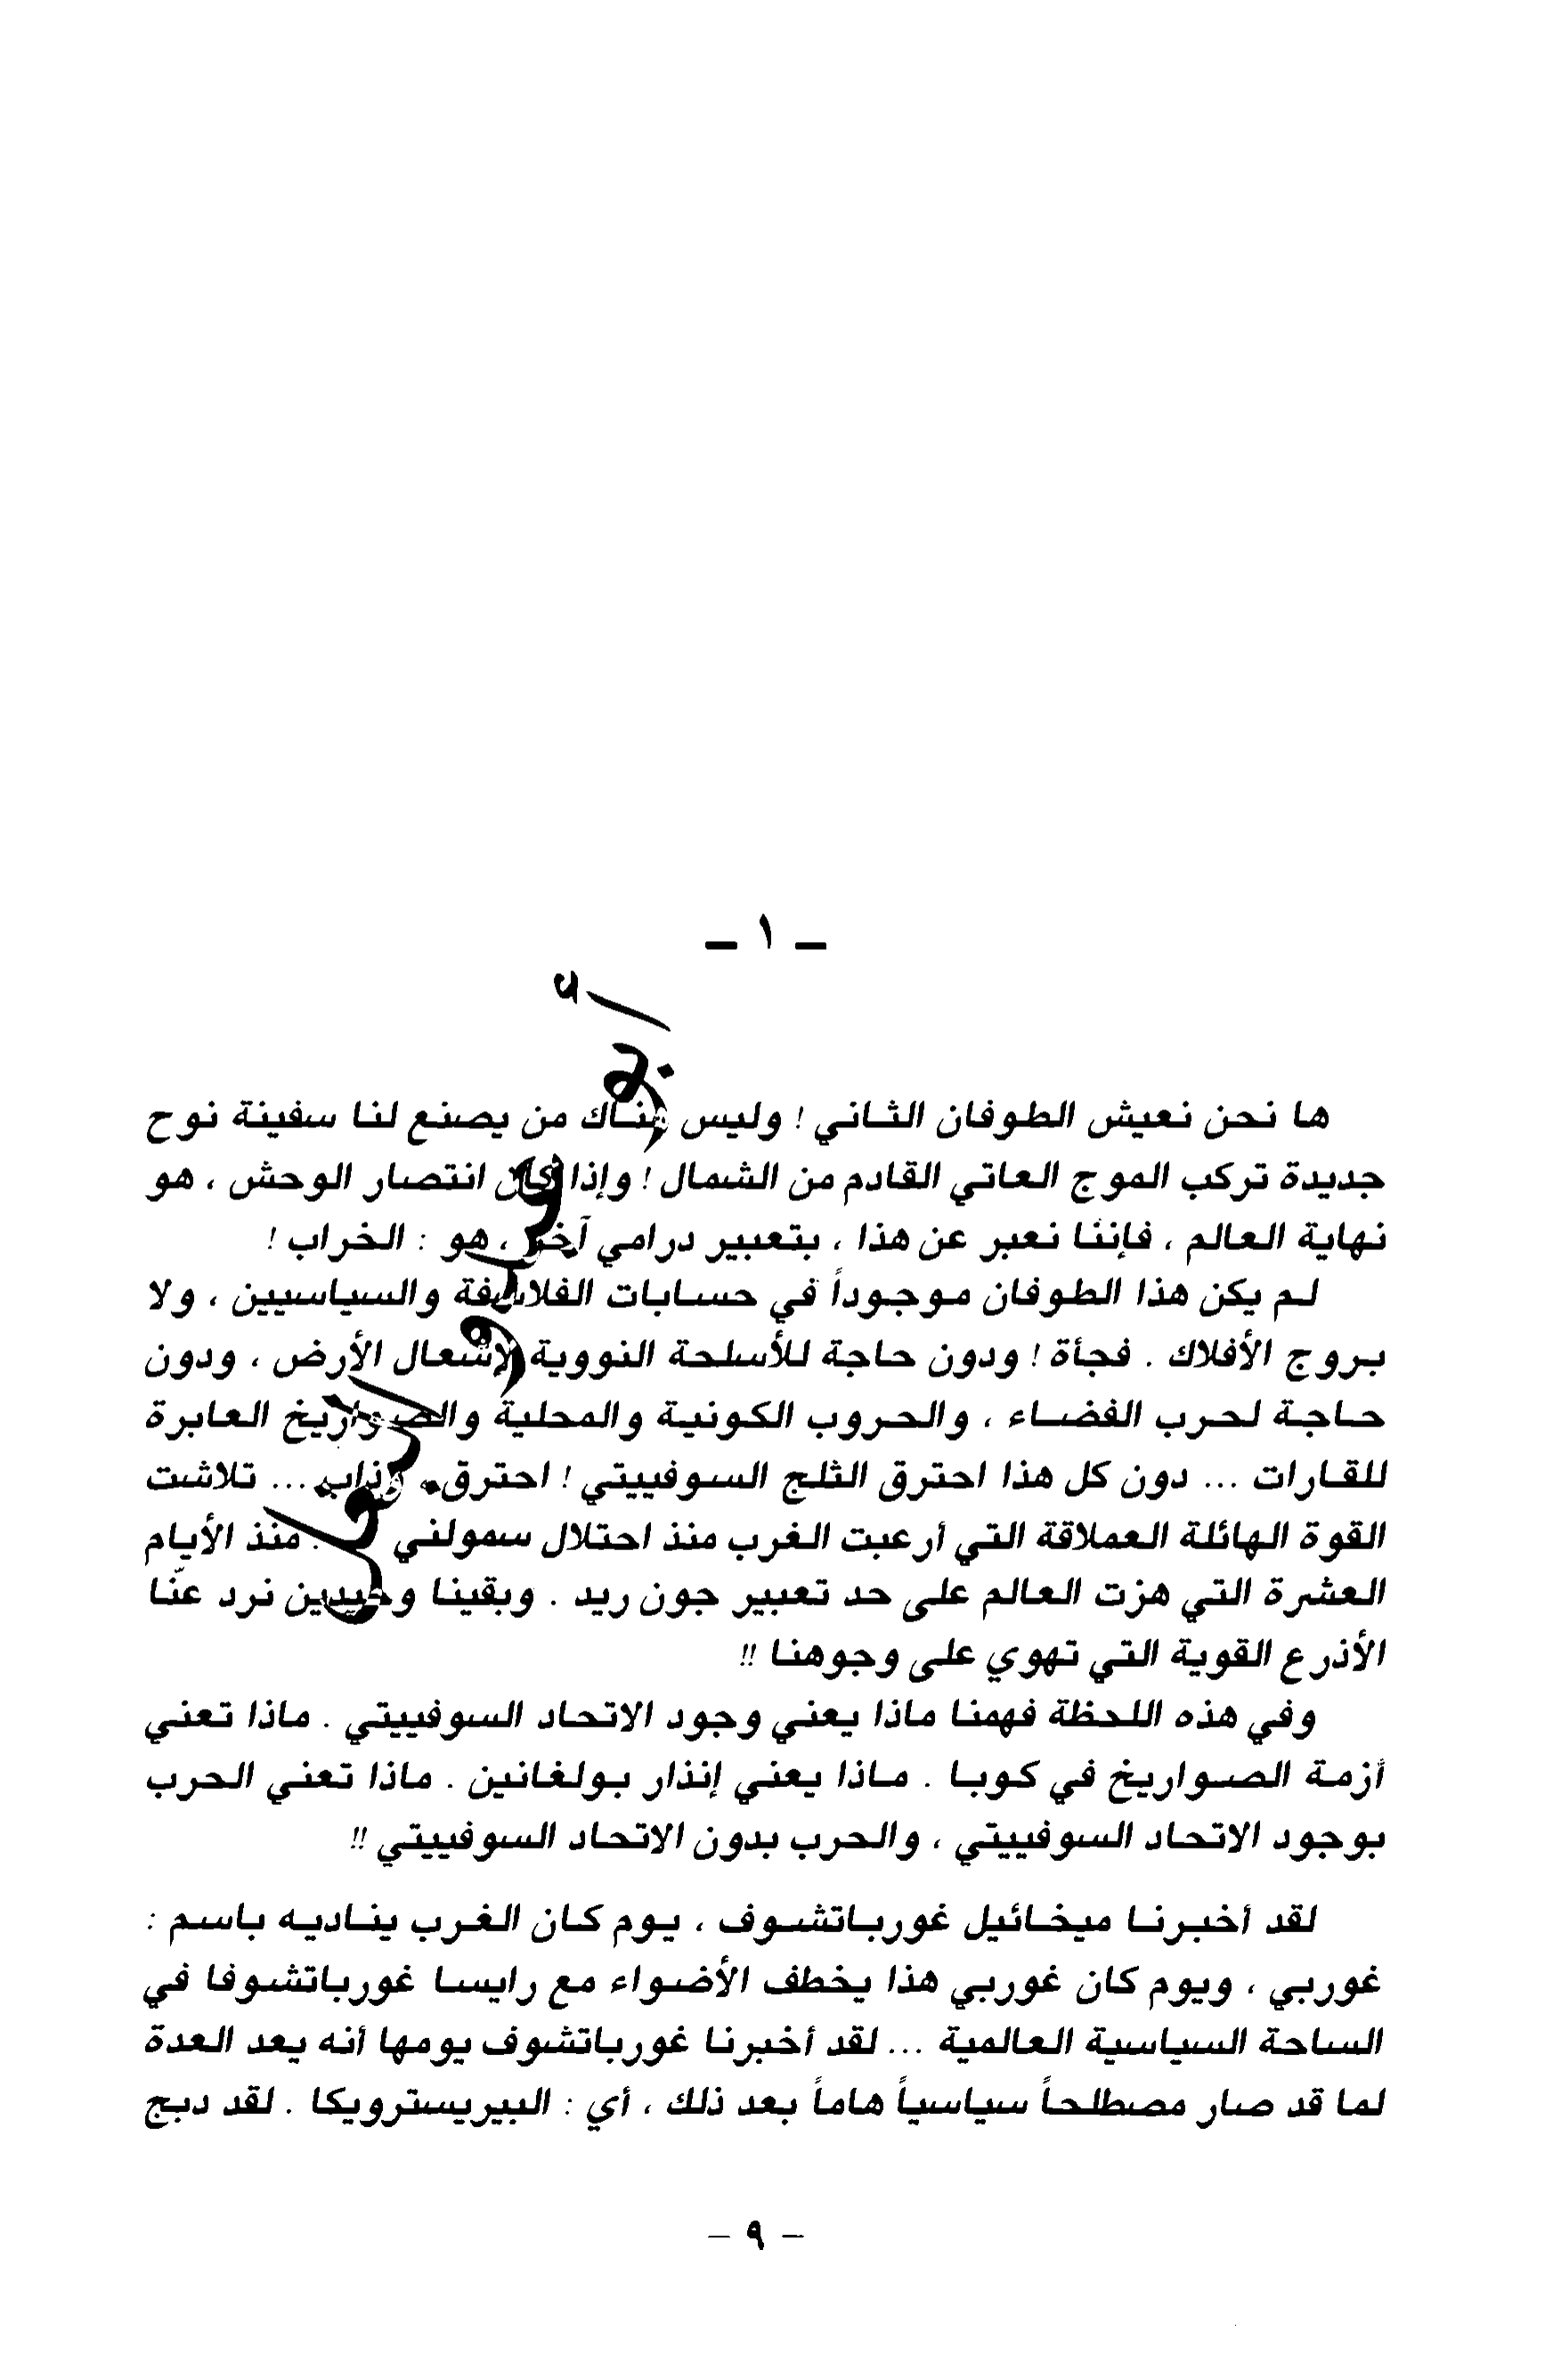 - ١ -
ها نحن نعيش الطوفان الثاني ! وليس هناك من يصنع لنا سفينة نوح
جديدة تركب الموج العاتي القادم من الشمال ! وإذا كان انتصار الوحش ، هو
نهاية العالم ، فإننا نعبر عن هذا ، بتعبير درامي آخر ، هو : الخراب !
لم يكن هذا الطوفان موجوداً في حسابات الفلاسفة والسياسيين ، ولا
بروج الأفلاك . فجأة ! ودون حاجة للأسلحة النووية لإشعال الأرض ، ودون
حاجة لحرب الفضاء ، والحروب الكونية والمحلية والصواريخ العابرة
للقارات ... دون كل هذا احترق الثلج السوفييتي ! احترق وذاب ... تلاشت
القوة الهائلة العملاقة التي أرعبت الغرب منذ احتلال سمولني . منذ الأيام
العشرة التي هزت العالم على حد تعبير جون ريد . وبقينا وحيدين نرد عنّا
الأذرع القوية التي تهوي على وجوهنا !!
وفي هذه اللحظة فهمنا ماذا يعني وجود الاتحاد السوفييتي . ماذا تعني
أزمة الصواريخ في كوبا . ماذا يعني إنذار بولغانين . ماذا تعني الحرب
بوجود الاتحاد السوفييتي ، والحرب بدون الاتحاد السوفييتي !!
لقد أخبرنا ميخائيل غورباتشوف ، يوم كان الغرب يناديه باسم :
غوربي ، ويوم كان غوربي هذا يخطف الأضواء مع رايسا غورباتشوفا في
الساحة السياسية العالمية ... لقد أخبرنا غورباتشوف يومها أنه يعد العدة
لما قد صار مصطلحاً سياسياً هاماً بعد ذلك ، أي : البيريسترويكا . لقد دبج
- ٩ -